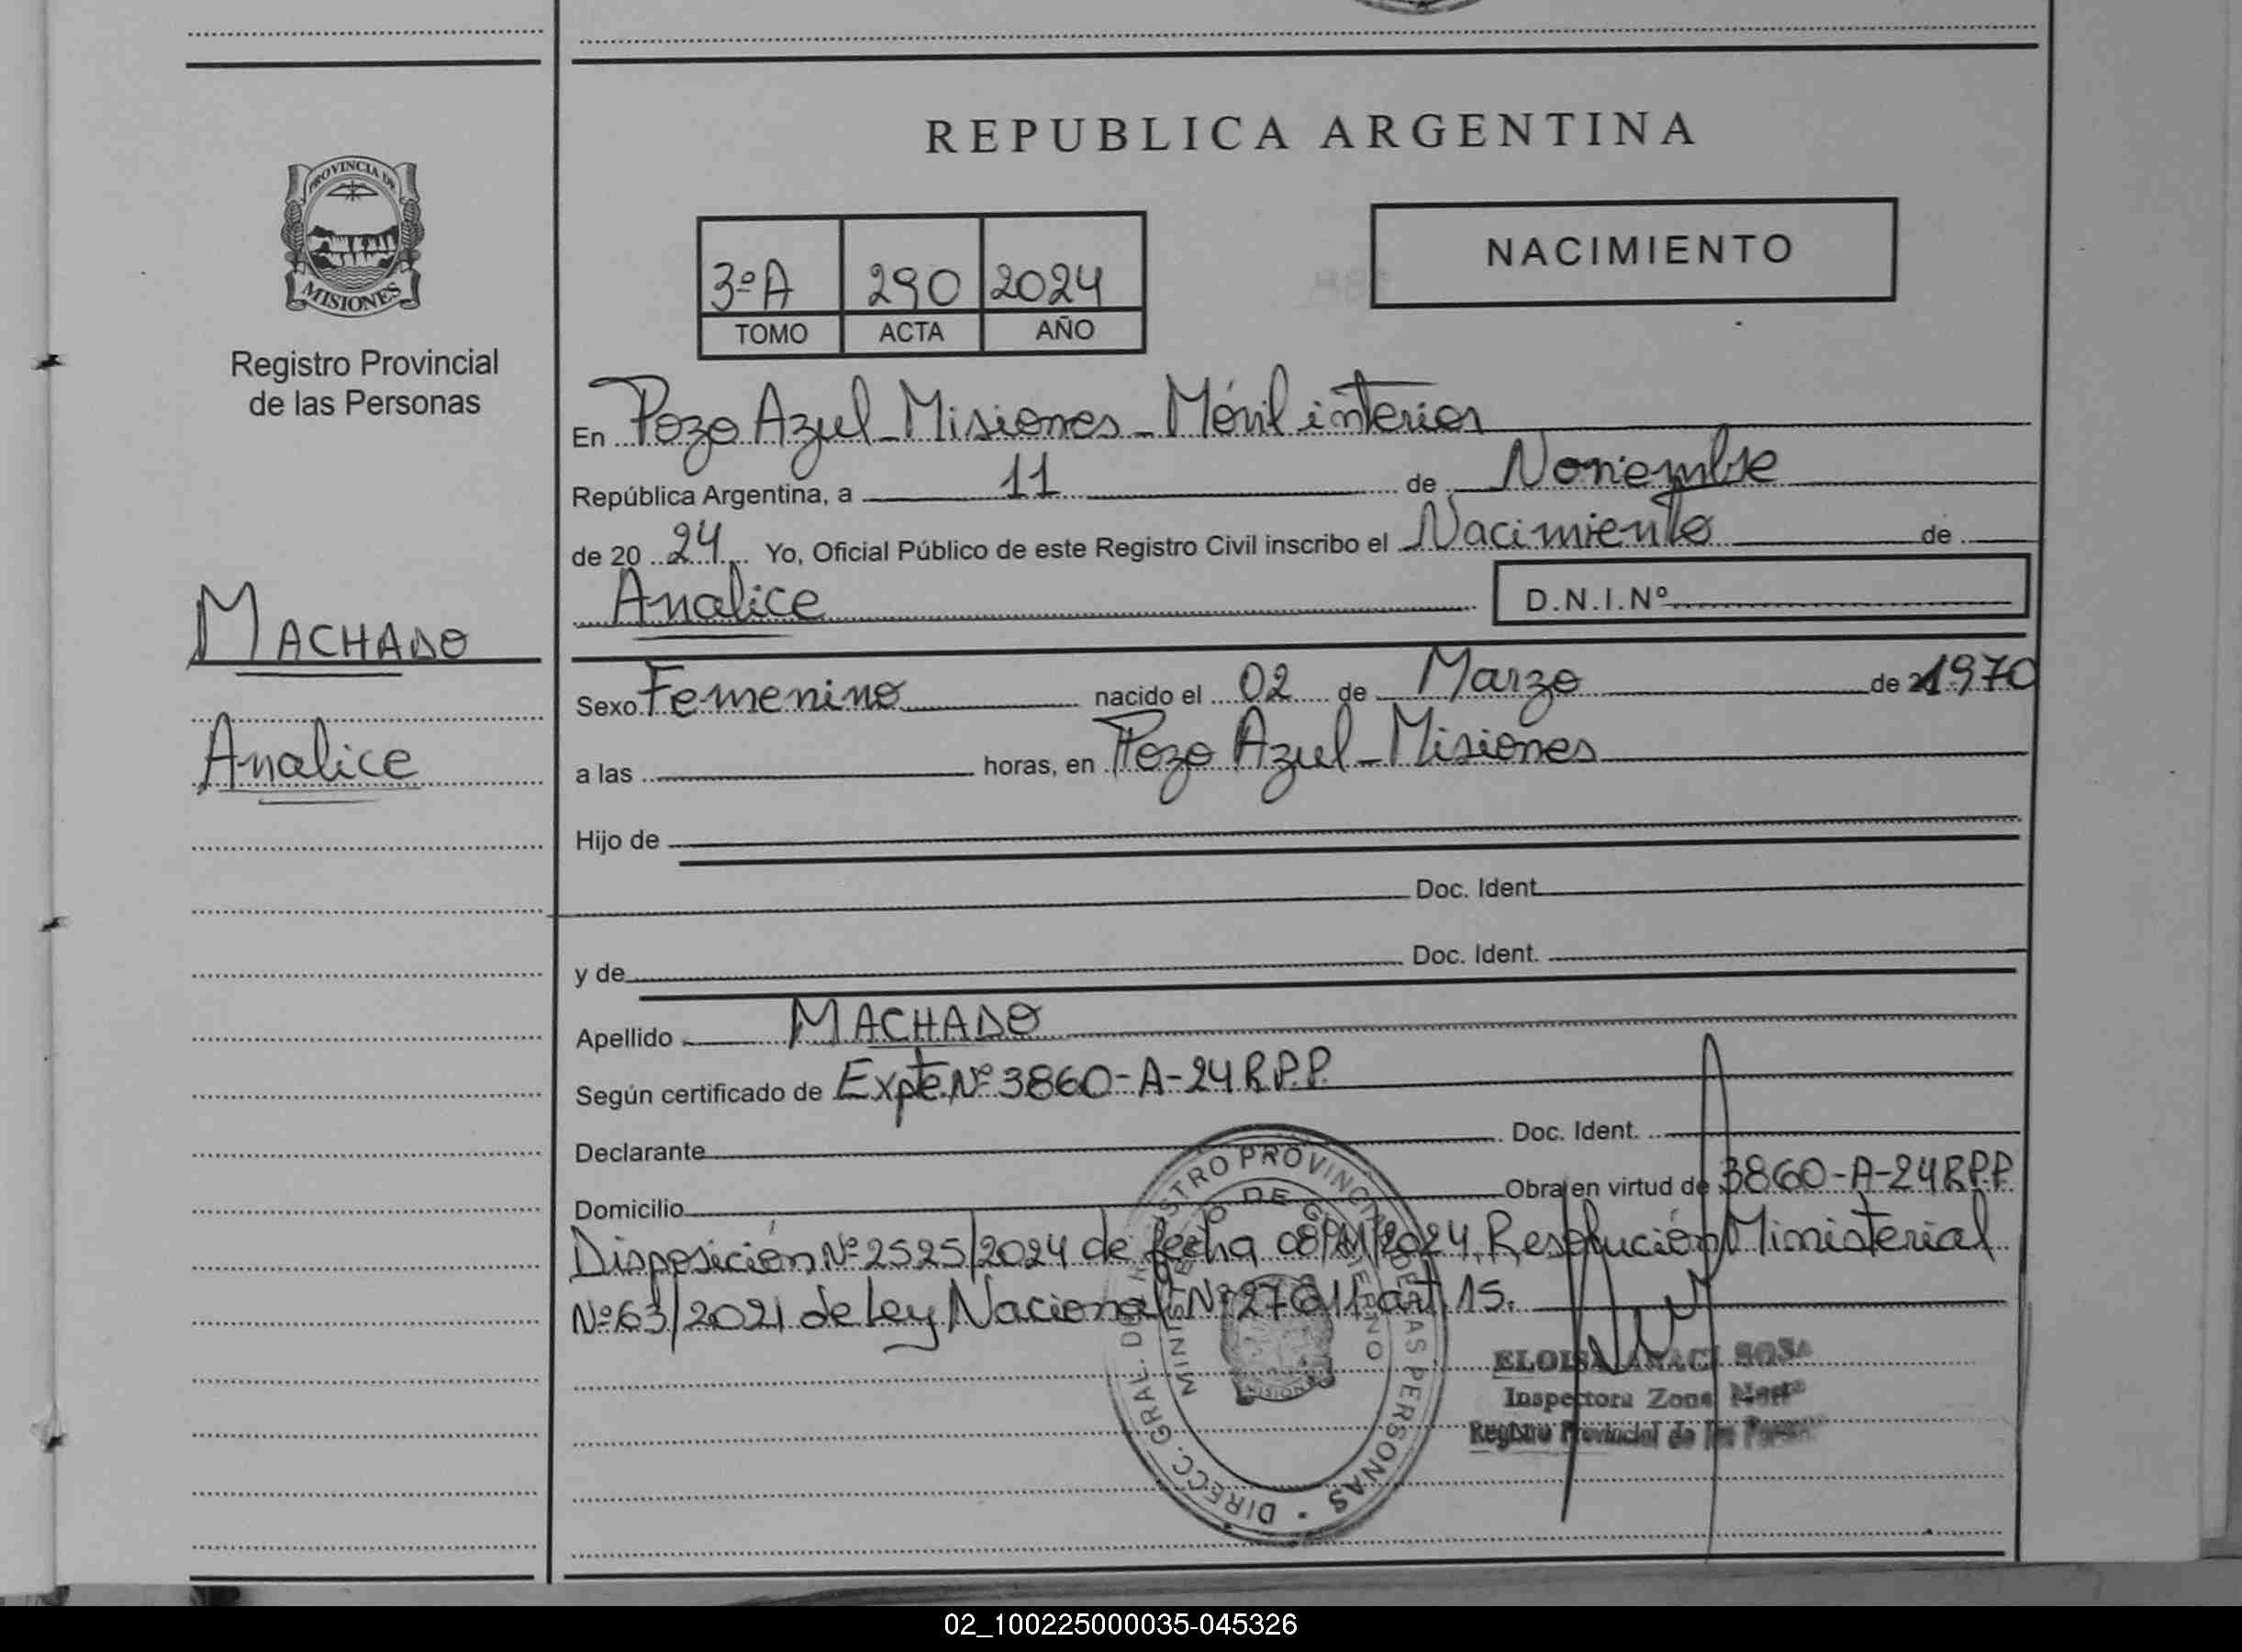 REPUBLICA ARGENTINA
PROVINCIA DE
MISIONES
Registro Provincial
de las Personas
MACHADO
Analice
3ºA 290 2024
TOMO ACTA AÑO
NACIMIENTO
En Pozo Azul - Misiones - Móvil interior
República Argentina, a 11 de Noviembre
de 20 24 Yo, Oficial Público de este Registro Civil inscribo el Nacimiento de
Analice D.N.I.Nº
Sexo Femenino nacido el 02 de Marzo de 1970
a las horas, en Pozo Azul - Misiones
Hijo de
Doc. Ident.
y de Doc. Ident.
Apellido MACHADO
Según certificado de Expte. Nº 3860-A-24 R.P.P.
Declarante Doc. Ident.
Domicilio Obra en virtud de 3860-A-24 R.P.P.
Disposición Nº 2525/2024 de fecha 08/11/2024, Resolución Ministerial
Nº 63/2021 de Ley Nacional Nº 27611 art 15.
DIRECC. GRAL. DEL REGISTRO PROVINCIAL DE LAS PERSONAS
MINISTERIO DE GOBIERNO
MISIONES
ELOISA ANACI SOSA
Inspectora Zona Norte
Registro Provincial de las Personas
02_100225000035-045326